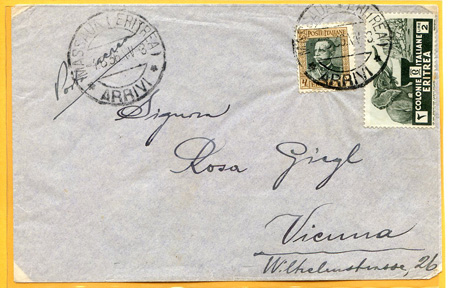 MASSAUA (ERITREA)
ARRIVI
MASSAUA (ERITREA)
ARRIVI
POSTE ITALIANE
2
COLONIE ITALIANE
ERITREA
Signora
Rosa Giegl
Vienna
Wilhelmstrasse, 26